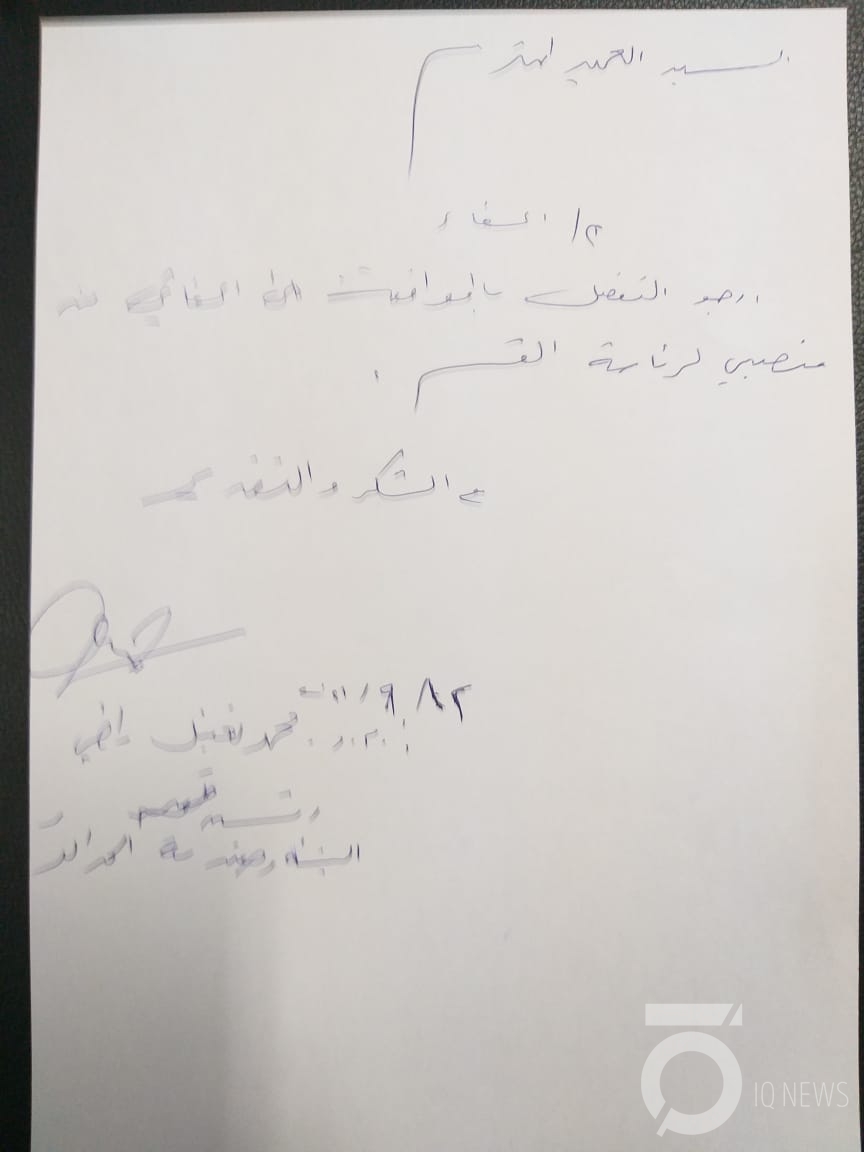 السيد العميد المحترم
م/ اعفاء
ارجو التفضل بالموافقة على اعفائي من
منصبي لرئاسة القسم .
مع الشكر والتقدير
محمد فضيل راضي
رئيس قسم
البناء وهندسة
IQ NEWS